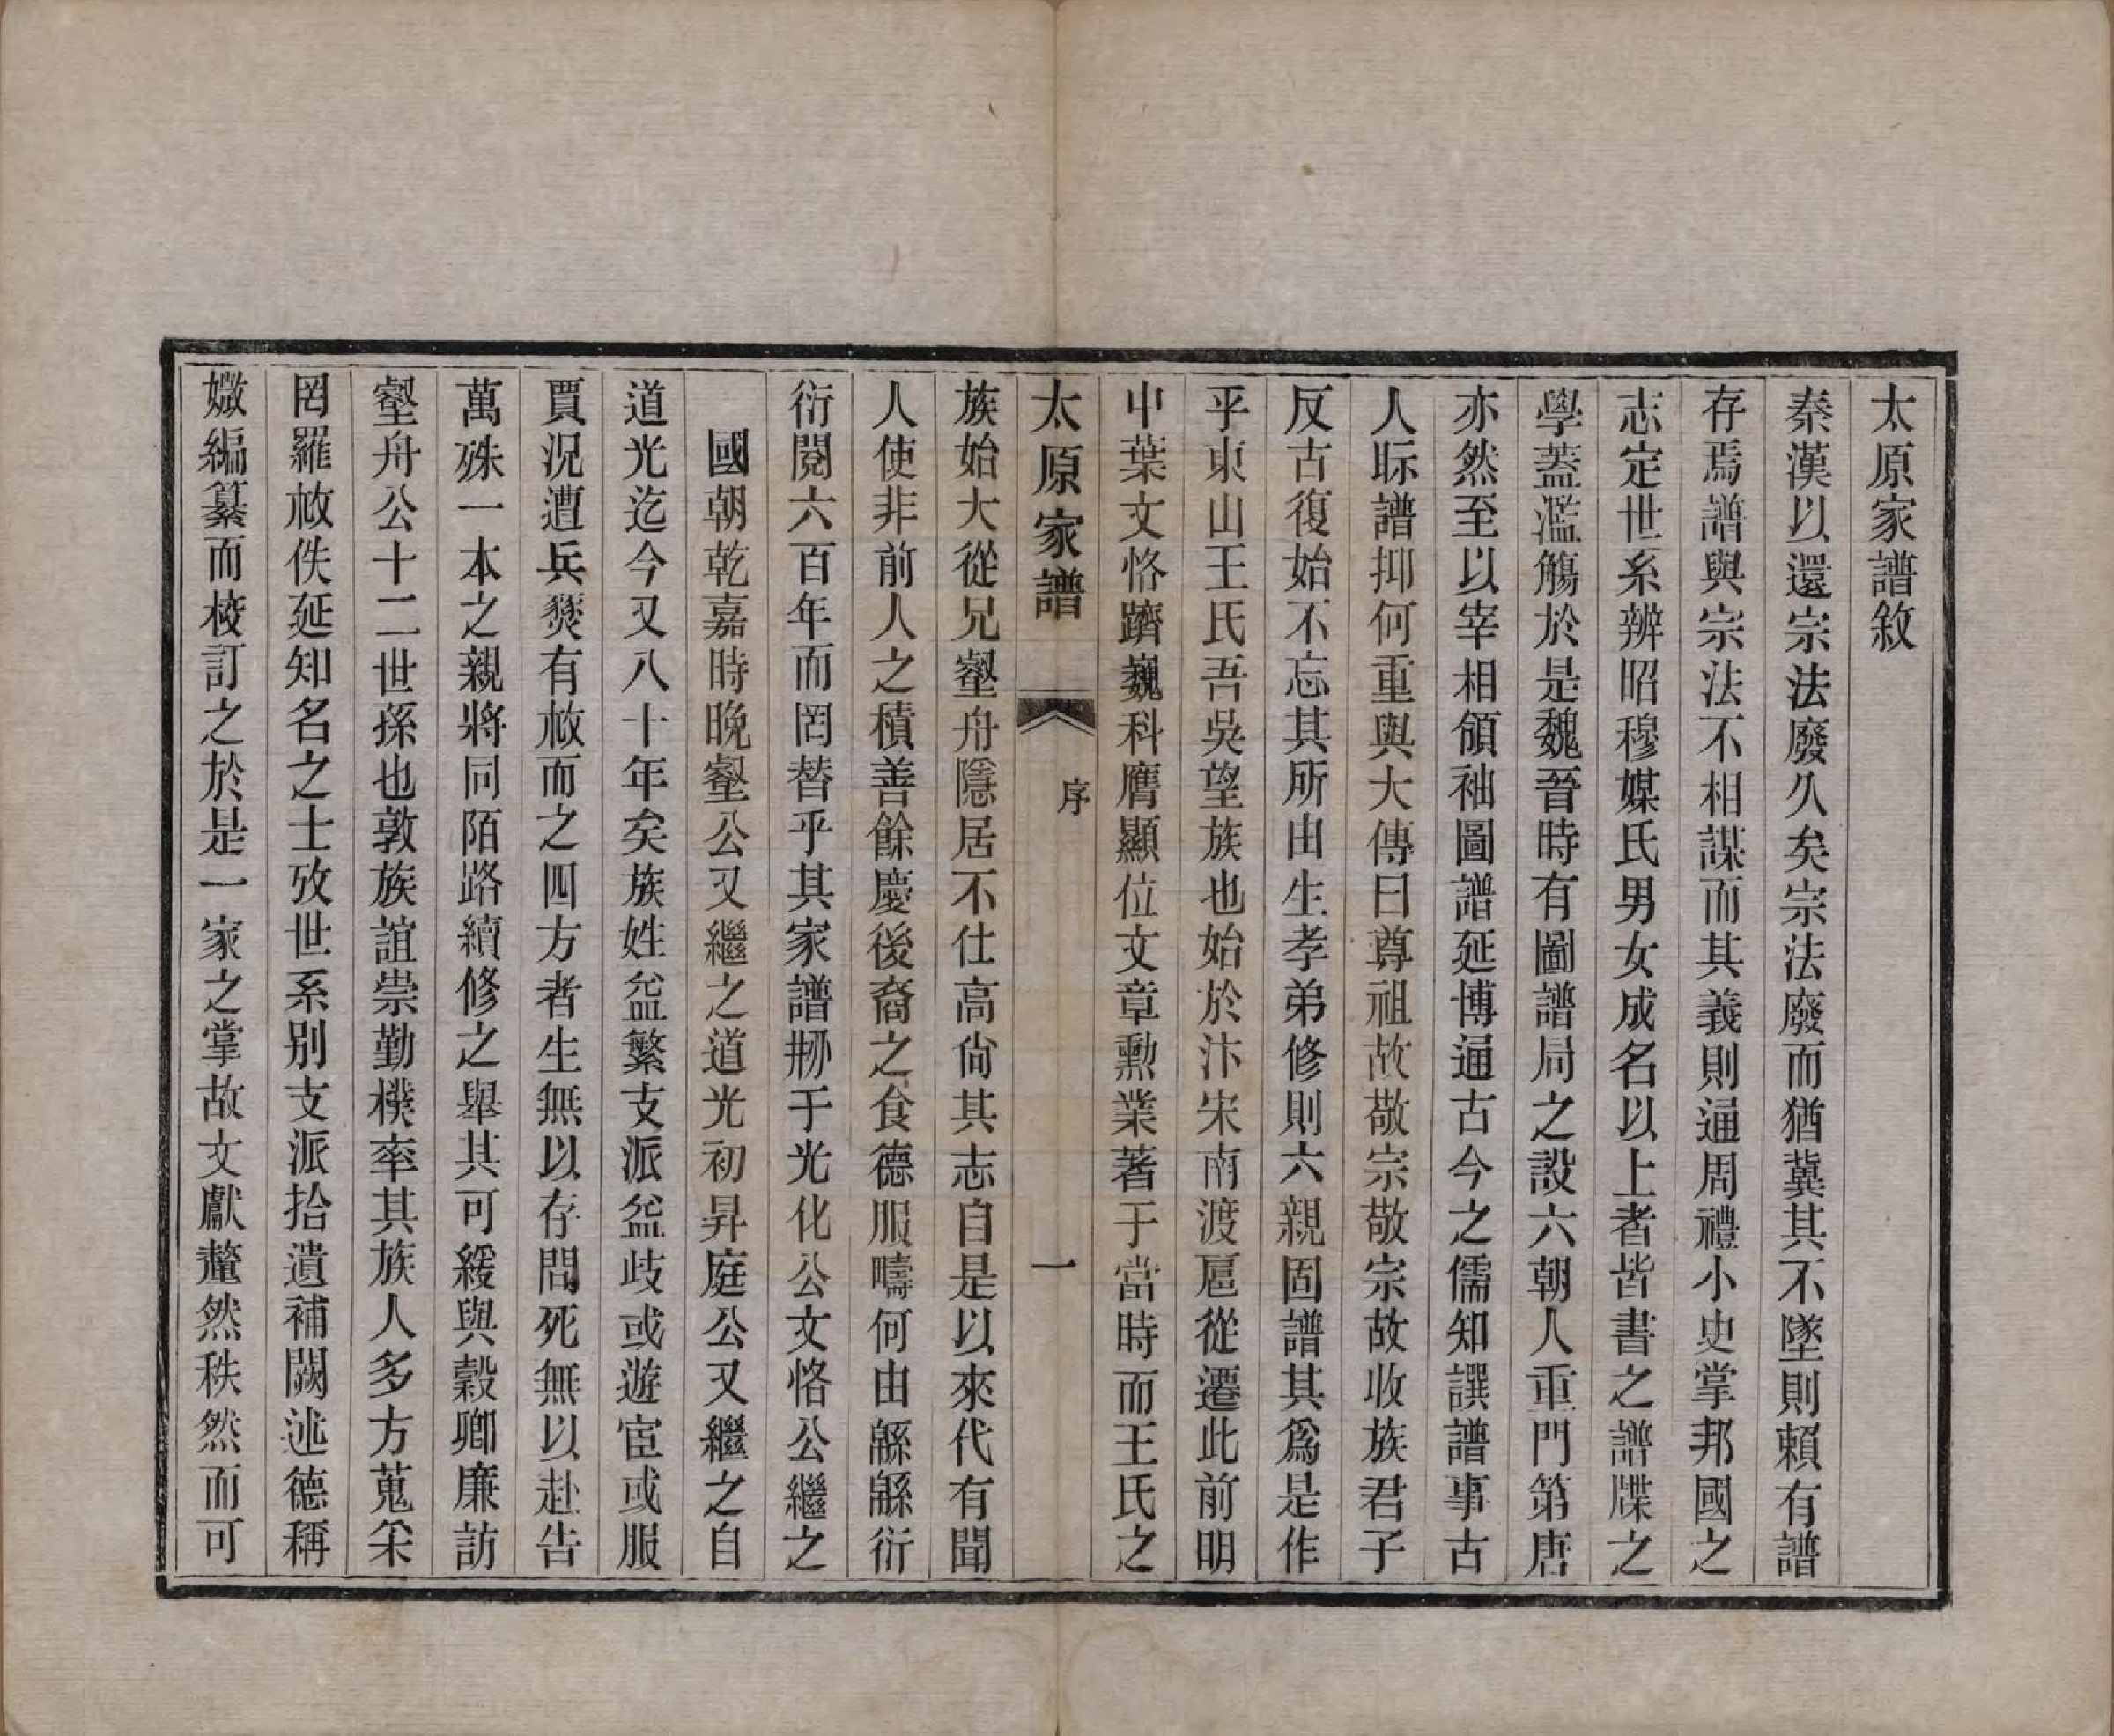 太原家譜敘
秦漢以還宗法廢久矣宗法廢而猶冀其不墜則賴有譜
存焉譜與宗法不相謀而其義則通周禮小史掌邦國之
志定世系辨昭穆媒氏男女成名以上者皆書之譜牒之
學蓋濫觴於是魏晉時有圖譜局之設六朝人重門第唐
亦然至以宰相領袖圖譜延博通古今之儒知譔譜事古
人眎譜抑何重與大傳曰尊祖故敬宗敬宗故收族君子
反古復始不忘其所由生孝弟修則六親固譜其爲是作
乎東山王氏吾吳望族也始於汴宋南渡扈從遷此前明
中葉文恪躋巍科膺顯位文章勳業著于當時而王氏之
太原家譜 序 一
族始大從兄壑舟隱居不仕高尙其志自是以來代有聞
人使非前人之積善餘慶後裔之食德服疇何由緜緜衍
衍閱六百年而罔替乎其家譜刱于光化公文恪公繼之
國朝乾嘉時晚壑公又繼之道光初昇庭公又繼之自
道光迄今又八十年矣族姓益繁支派益歧或遊宦或服
賈況遭兵燹有敓而之四方者生無以存問死無以赴告
萬殊一本之親將同陌路續修之舉其可緩與穀卿廉訪
壑舟公十二世孫也敦族誼崇勤樸率其族人多方蒐采
罔羅放佚延知名之士攷世系別支派拾遺補闕述德稱
媺編纂而校訂之於是一家之掌故文獻釐然秩然而可